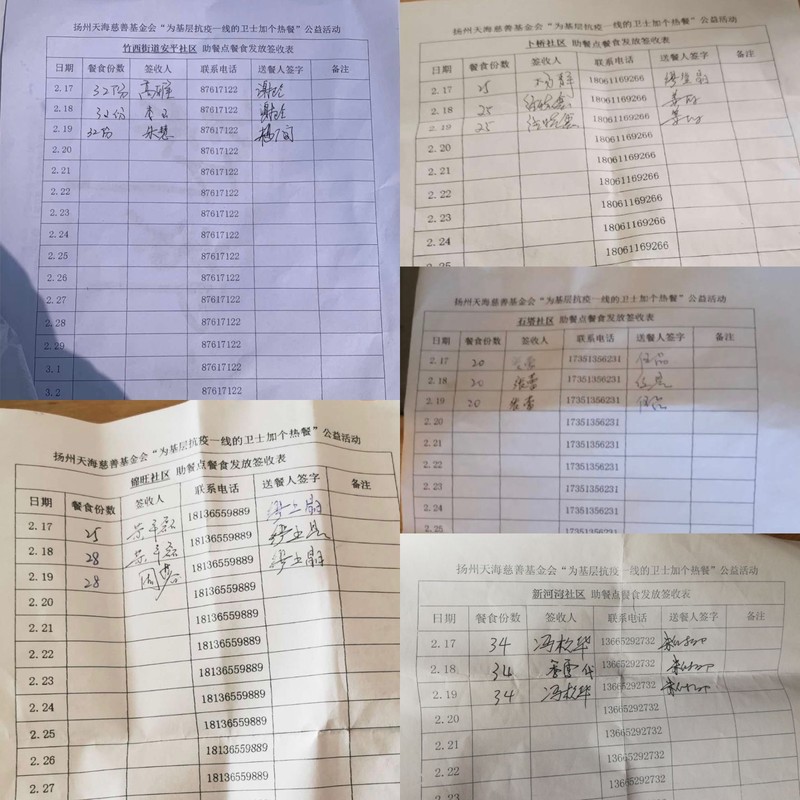 扬州天海慈善基金会“为基层抗疫一线的卫士加个热餐”公益活动
竹西街道安平社区 助餐点餐食发放签收表
日期 餐食份数 签收人 联系电话 送餐人签字 备注
2.17 32份 87617122
2.18 32份 87617122
2.19 32份 朱慧 87617122
2.20 87617122
2.21 87617122
2.22 87617122
2.23 87617122
2.24 87617122
2.25 87617122
2.26 87617122
2.27 87617122
2.28 87617122
2.29 87617122
3.1 87617122
3.2 87617122
扬州天海慈善基金会“为基层抗疫一线的卫士加个热餐”公益活动
卜桥社区 助餐点餐食发放签收表
日期 餐食份数 签收人 联系电话 送餐人签字 备注
2.17 25 18061169266
2.18 25 18061169266
2.19 25 18061169266
2.20 18061169266
2.21 18061169266
2.22 18061169266
2.23 18061169266
2.24 18061169266
2.25
扬州天海慈善基金会“为基层抗疫一线的卫士加个热餐”公益活动
石塔社区 助餐点餐食发放签收表
日期 餐食份数 签收人 联系电话 送餐人签字 备注
2.17 20 17351356231
2.18 20 张雷 17351356231
2.19 20 张雷 17351356231
2.20 17351356231
2.21 17351356231
2.22 17351356231
2.23 17351356231
2.24 17351356231
2.25
扬州天海慈善基金会“为基层抗疫一线的卫士加个热餐”公益活动
锦旺社区 助餐点餐食发放签收表
日期 餐食份数 签收人 联系电话 送餐人签字 备注
2.17 25 18136559889
2.18 28 18136559889
2.19 28 18136559889
2.20 18136559889
2.21 18136559889
2.22 18136559889
2.23 18136559889
2.24 18136559889
2.25 18136559889
2.26 18136559889
2.27 18136559889
扬州天海慈善基金会“为基层抗疫一线的卫士加个热餐”公益活动
新河湾社区 助餐点餐食发放签收表
日期 餐食份数 签收人 联系电话 送餐人签字 备注
2.17 34 冯松华 13665292732
2.18 34 13665292732
2.19 34 冯松华 13665292732
2.20 13665292732
2.21 13665292732
2.22 13665292732
2.23 13665292732